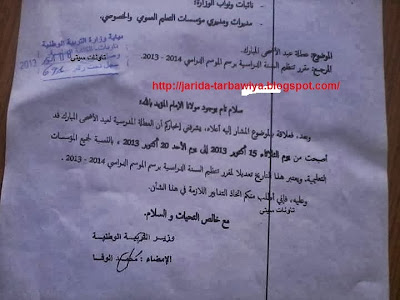 نائبات ونواب الوزارة؛
مديرات ومديري مؤسسات التعليم العمومي والخصوصي.
نيابة وزارة التربية الوطنية
تاونات
2013
الموضوع: عطلة عيد الأضحى المبارك.
المرجع: مقرر تنظيم السنة الدراسية برسم الموسم الدراسي 2014 - 2013.
http://jarida-tarbawiya.blogspot.com/
سلام تام بوجود مولانا الإمام المؤيد بالله؛
وبعد، فعلاقة بالموضوع المشار إليه أعلاه، يشرفني إخباركم أن العطلة المدرسية لعيد الأضحى المبارك قد
أصبحت من يوم الثلاثاء 15 أكتوبر 2013 إلى يوم الأحد 20 أكتوبر 2013، بالنسبة لجميع المؤسسات
التعليمية. ويعتبر هذا التاريخ تعديلا لمقرر تنظيم السنة الدراسية برسم الموسم الدراسي 2014 - 2013.
وعليه، فإني أطلب منكم اتخاذ التدابير اللازمة في هذا الشأن.
تاونات سيتي
مع خالص التحيات و السلام.
وزير التربية الوطنية
الإمضاء: محمد الوفا